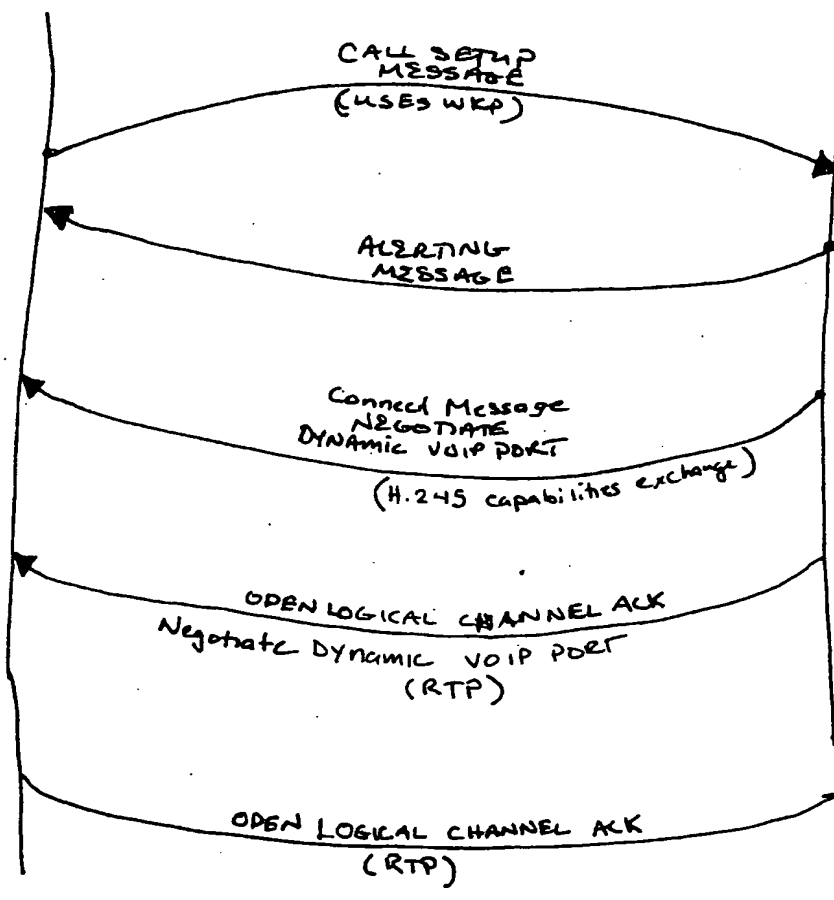 CALL SETUP
MESSAGE
(USES WKP)
ALERTING
MESSAGE
Connect Message
NEGOTIATE
DYNAMIC VOIP PORT
(H.245 capabilities exchange)
OPEN LOGICAL CHANNEL ACK
Negotiate Dynamic VOIP PORT
(RTP)
OPEN LOGICAL CHANNEL ACK
(RTP)